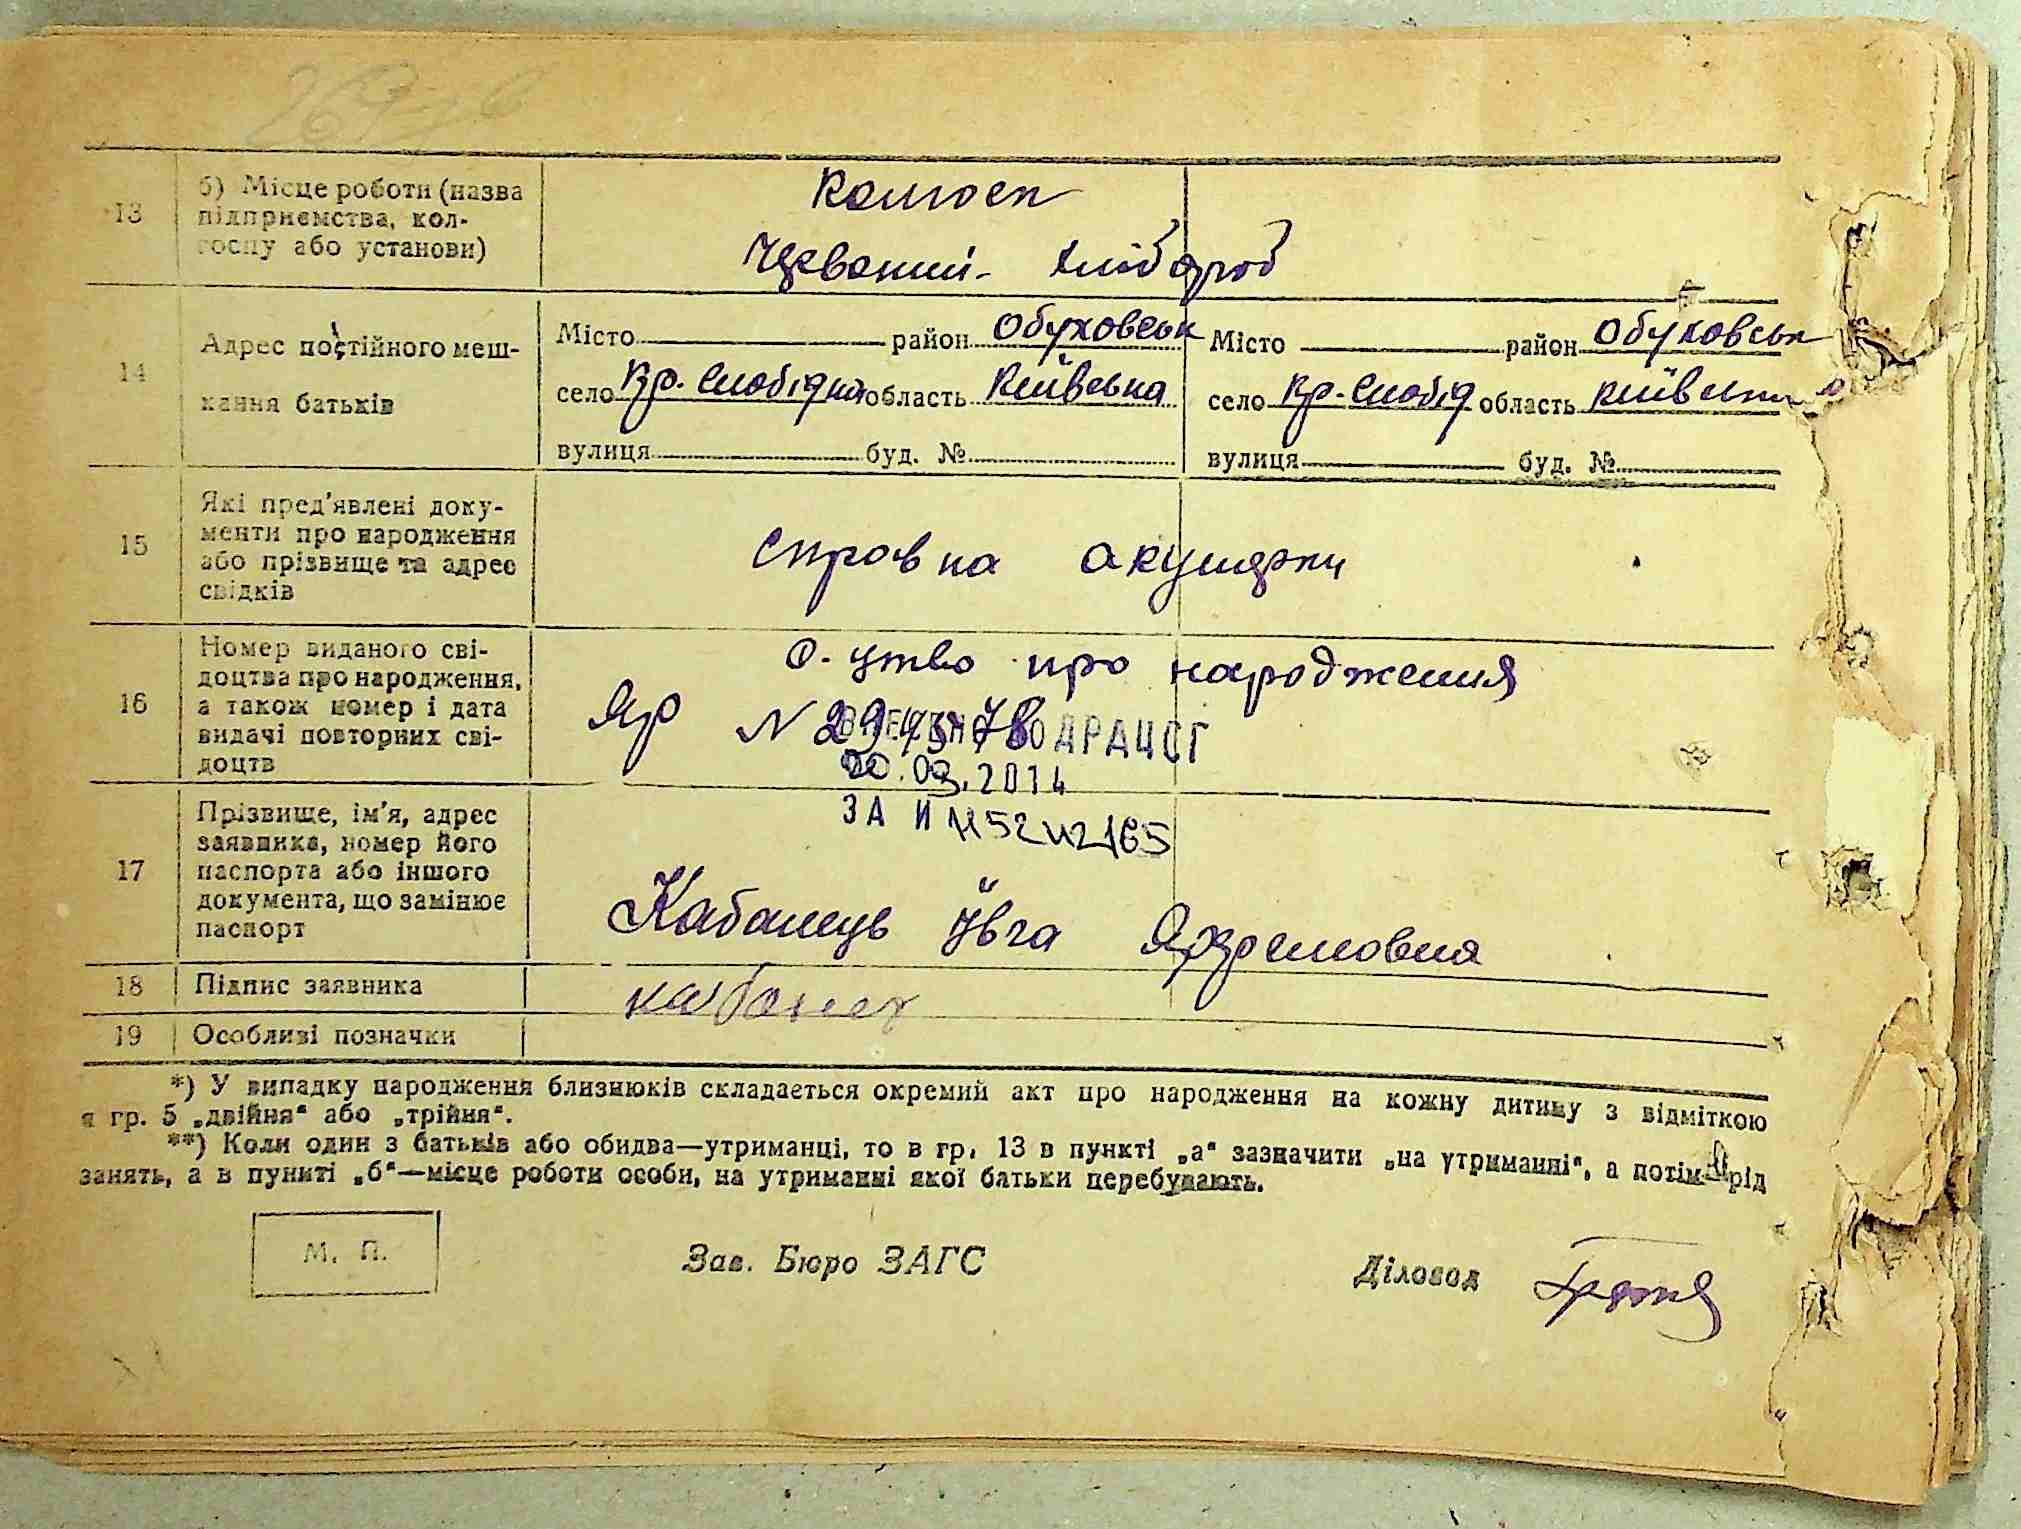 13
б) Місце роботи (назва
підприємства, кол-
госпу або установи)
Колгосп
Червоний хлібороб
14
Адрес постійного меш-
кання батьків
Місто район Обуховськ
село Кр. Слобідка область Київська
вулиця буд. №
Місто район Обуховськ
село Кр. Слобід область Київськ
вулиця буд. №
15
Які пред'явлені доку-
менти про народження
або прізвище та адрес
свідків
Справка акушерки
16
Номер виданого сві-
доцтва про народження,
а також номер і дата
видачі повторних сві-
доцтв
про народження
ЯР N
ДРАЦСГ
2014
ЗА N
17
Прізвище, ім'я, адрес
заявника, номер його
паспорта або іншого
документа, що замінює
паспорт
Кабанець Ївга
18
Підпис заявника
Кабанец
19
Особливі позначки
*) У випадку народження близнюків складається окремий акт про народження на кожну дитину з відміткою
в гр. 5 „двійня“ або „трійня“.
**) Коли один з батьків або обидва—утриманці, то в гр. 13 в пункті „а“ зазначити „на утриманні“, а потім рід
занять, а в пункті „б“—місце роботи особи, на утриманні якої батьки перебувають.
М. П.
Зав. Бюро ЗАГС
Діловод